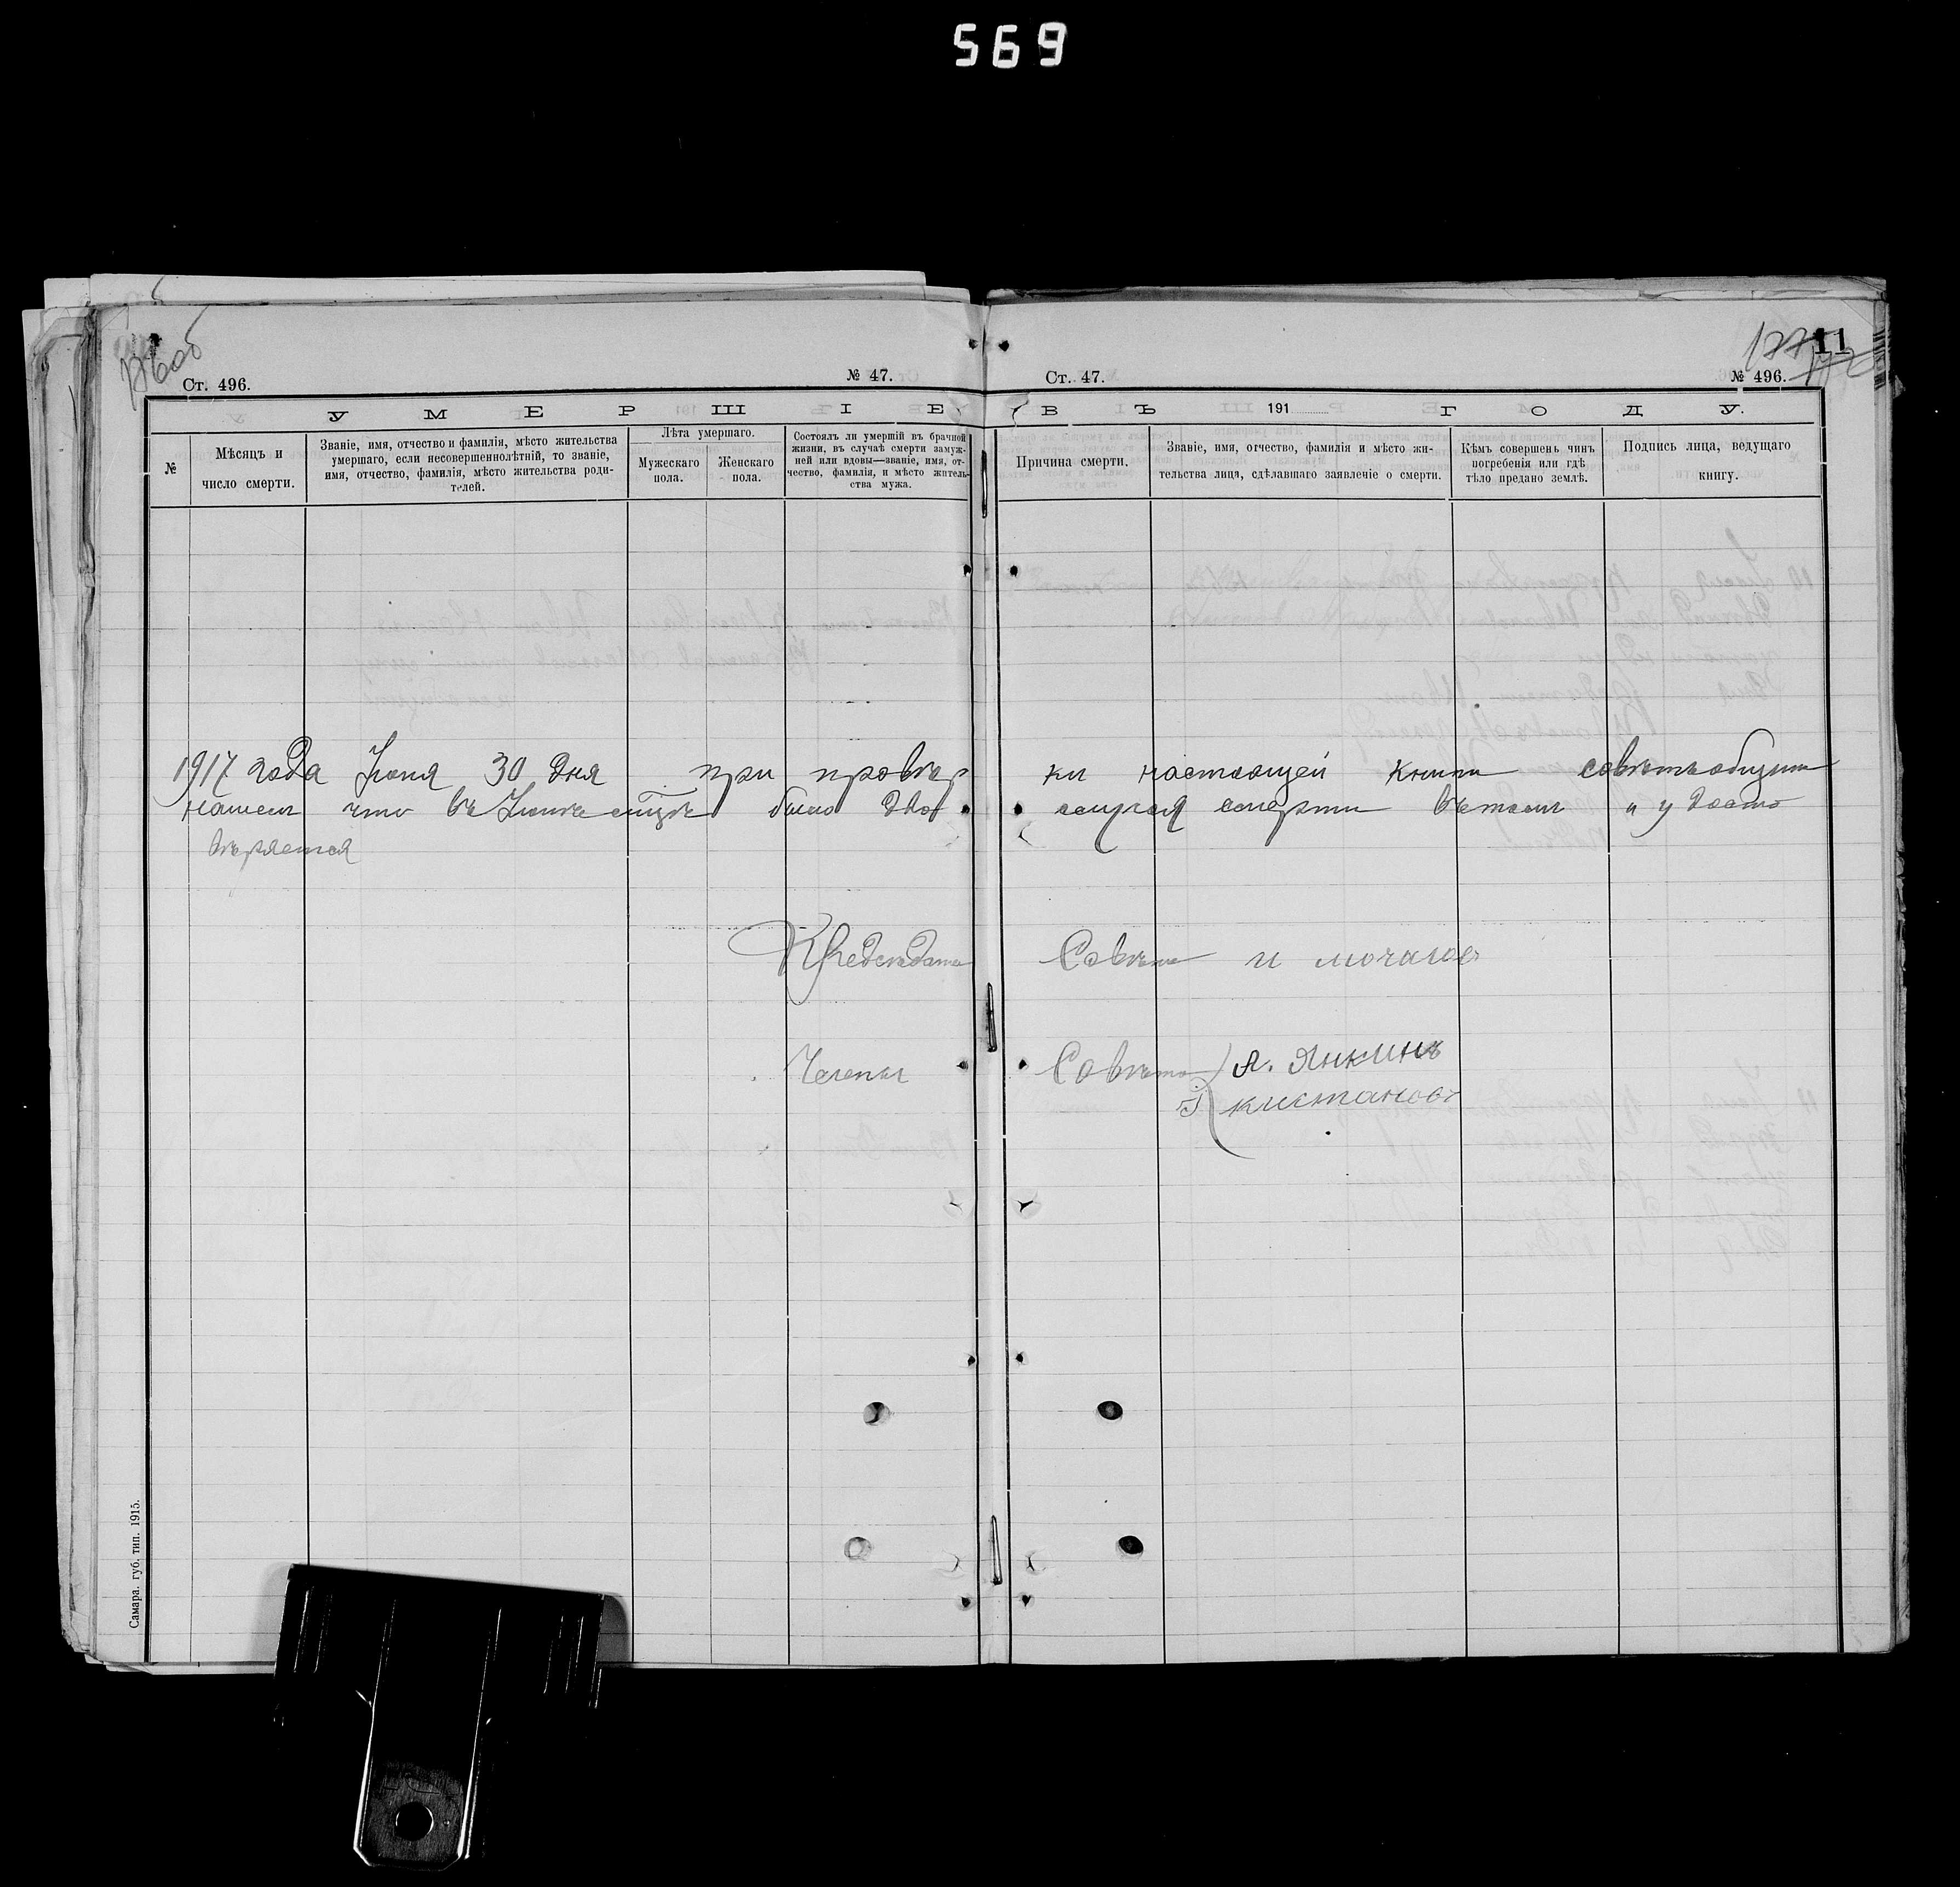 569
11
Ст. 496.
№ 47.
Ст. 47.
№ 496.
УМЕРШІЕ ВЪ 191 ГОДУ.
№
Мѣсяцъ и
число смерти.
Званіе, имя, отчество и фамилія, мѣсто жительства
умершаго, если несовершеннолѣтній, то званіе,
имя, отчество, фамилія, мѣсто жительства роди-
телей.
Лѣта умершаго.
Мужескаго
пола.
Женскаго
пола.
Состоялъ ли умершій въ брачной
жизни, въ случаѣ смерти замуж-
ней или вдовы—званіе, имя, от-
чество, фамилія, и мѣсто житель-
ства мужа.
Причина смерти.
Званіе, имя, отчество, фамилія и мѣсто жи-
тельства лица, сдѣлавшаго заявлечіе о смерти.
Кѣмъ совершенъ чинъ
погребенія или гдѣ
тѣло предано землѣ.
Подпись лица, ведущаго
книгу.
1917 года Іюня 30 дня при провѣр ки настоящей книги совѣтъ общины
нашел что въ Іюне было два случая смерти въ том и удосто
вѣряется
Председатель Совѣта и мочалов
Члены Совѣта А. Янкинъ
Г кистанов
Самара. губ. тип. 1915.